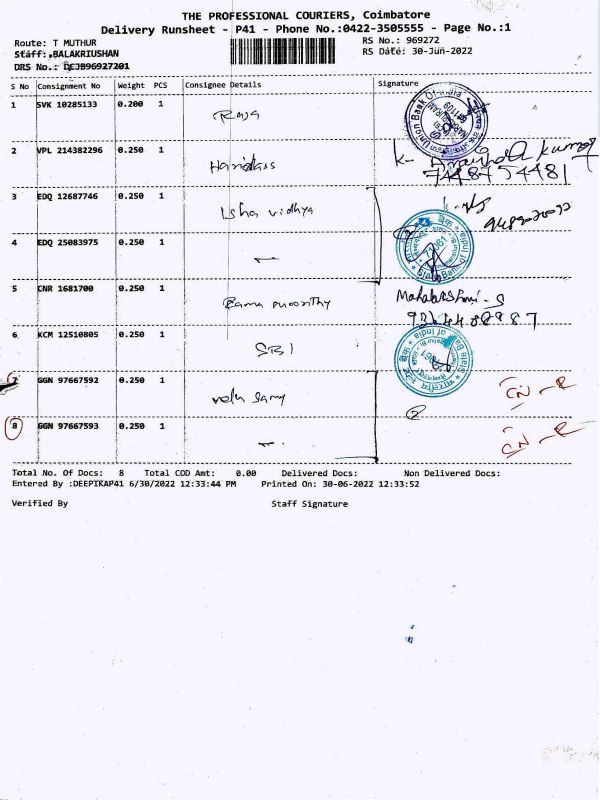 THE PROFESSIONAL COURIERS, Coimbatore
Delivery Runsheet - P41 - Phone No.:0422-3505555 - Page No.:1
Route: T MUTHUR RS No.: 969272
Staff: BALAKRIUSHAN RS Date: 30-Jun-2022
DRS No.: DEJB96927201
S No Consignment No Weight PCS Consignee Details Signature
1 SVK 10285133 0.200 1 Raja
Union Bank Of India
2 VPL 214382296 0.250 1 Haridass K. Aravindh Kumar
7448754481
3 EDQ 12687746 0.250 1 Isha vidhya
4 EDQ 25083975 0.250 1 —
State Bank of India
5 CNR 1681700 0.250 1 Rama moorthy Mahalakshmi - S
6 KCM 12510805 0.250 1 SBI
State Bank of India
7 GGN 97667592 0.250 1 velu samy CN - R
2
8 GGN 97667593 0.250 1 — CN - R
Total No. Of Docs: 8 Total COD Amt: 0.00 Delivered Docs: Non Delivered Docs:
Entered By :DEEPIKAP41 6/30/2022 12:33:44 PM Printed On: 30-06-2022 12:33:52
Verified By Staff Signature